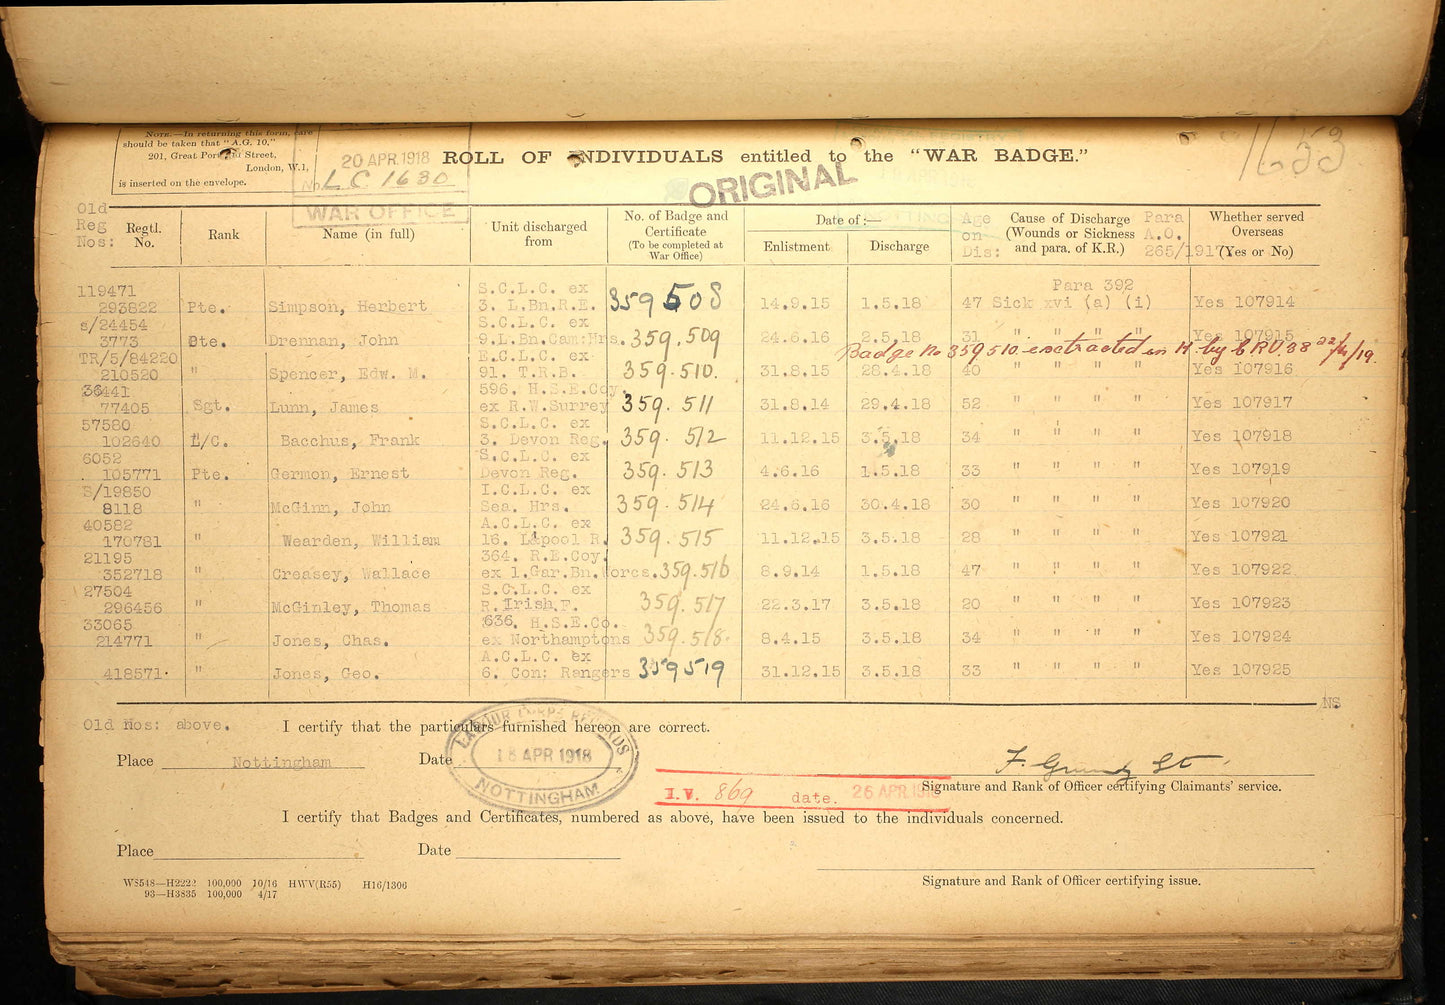 NOTE.—In returning this form, care
should be taken that "A.G. 10,"
201, Great Portland Street,
London, W.1,
is inserted on the envelope.
20 APR.1918
No. LC 1630
WAR OFFICE
ROLL OF INDIVIDUALS entitled to the "WAR BADGE."
ORIGINAL
1653
Old Reg Nos: Regtl. No. Rank Name (in full) Unit discharged from No. of Badge and Certificate (To be completed at War Office) Date of :— Enlistment Discharge Age on Dis: Cause of Discharge (Wounds or Sickness and para. of K.R.) Para A.O. 265/1917 Whether served Overseas (Yes or No)
119471 S.C.L.C. ex Para 392
293822 Pte. Simpson, Herbert 3. L.Bn.R.E. 359508 14.9.15 1.5.18 47 Sick xvi (a) (i) Yes 107914
s/24454 S.C.L.C. ex
3773 Pte. Drennan, John 9.L.Bn.Cam:Hrs. 359.509 24.6.16 2.5.18 31 " " " " Yes 107915
Badge No 359510 extracted in H. by
TR/5/84220 E.C.L.C. ex
210520 " Spencer, Edw. M. 91. T.R.B. 359.510. 31.8.15 28.4.18 40 " " " " Yes 107916
36441 596. H.S.E.Coy.
77405 Sgt. Lunn, James ex R.W.Surrey 359.511 31.8.14 29.4.18 52 " " " " Yes 107917
57580 S.C.L.C. ex
102640 L/C. Bacchus, Frank 3. Devon Reg. 359.512 11.12.15 3.5.18 34 " " " " Yes 107918
6052 S.C.L.C. ex
105771 Pte. Germon, Ernest Devon Reg. 359.513 4.6.16 1.5.18 33 " " " " Yes 107919
S/19850 I.C.L.C. ex
8118 " McGinn, John Sea. Hrs. 359.514 24.6.16 30.4.18 30 " " " " Yes 107920
40582 A.C.L.C. ex
170781 " Wearden, William 16. L'pool R. 359.515 11.12.15 3.5.18 28 " " " " Yes 107921
21195 364. R.E.Coy.
352718 " Creasey, Wallace ex 1.Gar.Bn.Worcs. 359.516 8.9.14 1.5.18 47 " " " " Yes 107922
27504 S.C.L.C. ex
296456 " McGinley, Thomas R.Irish.F. 359.517 22.3.17 3.5.18 20 " " " " Yes 107923
33065 636. H.S.E.Co.
214771 " Jones, Chas. ex Northamptons 359.518. 8.4.15 3.5.18 34 " " " " Yes 107924
A.C.L.C. ex
418571. " Jones, Geo. 6. Con: Rangers 359519 31.12.15 3.5.18 33 " " " " Yes 107925
NS
Old Nos: above. I certify that the particulars furnished hereon are correct.
Place Nottingham Date
LABOUR CORPS RECORDS
18 APR 1918
NOTTINGHAM
F. Grundy Lt
Signature and Rank of Officer certifying Claimants' service.
I.V. 869 date. 26 APR 1918
I certify that Badges and Certificates, numbered as above, have been issued to the individuals concerned.
Place Date
Signature and Rank of Officer certifying issue.
W8548—H2222 100,000 10/16 HWV(R55) H16/1306
93—H3835 100,000 4/17